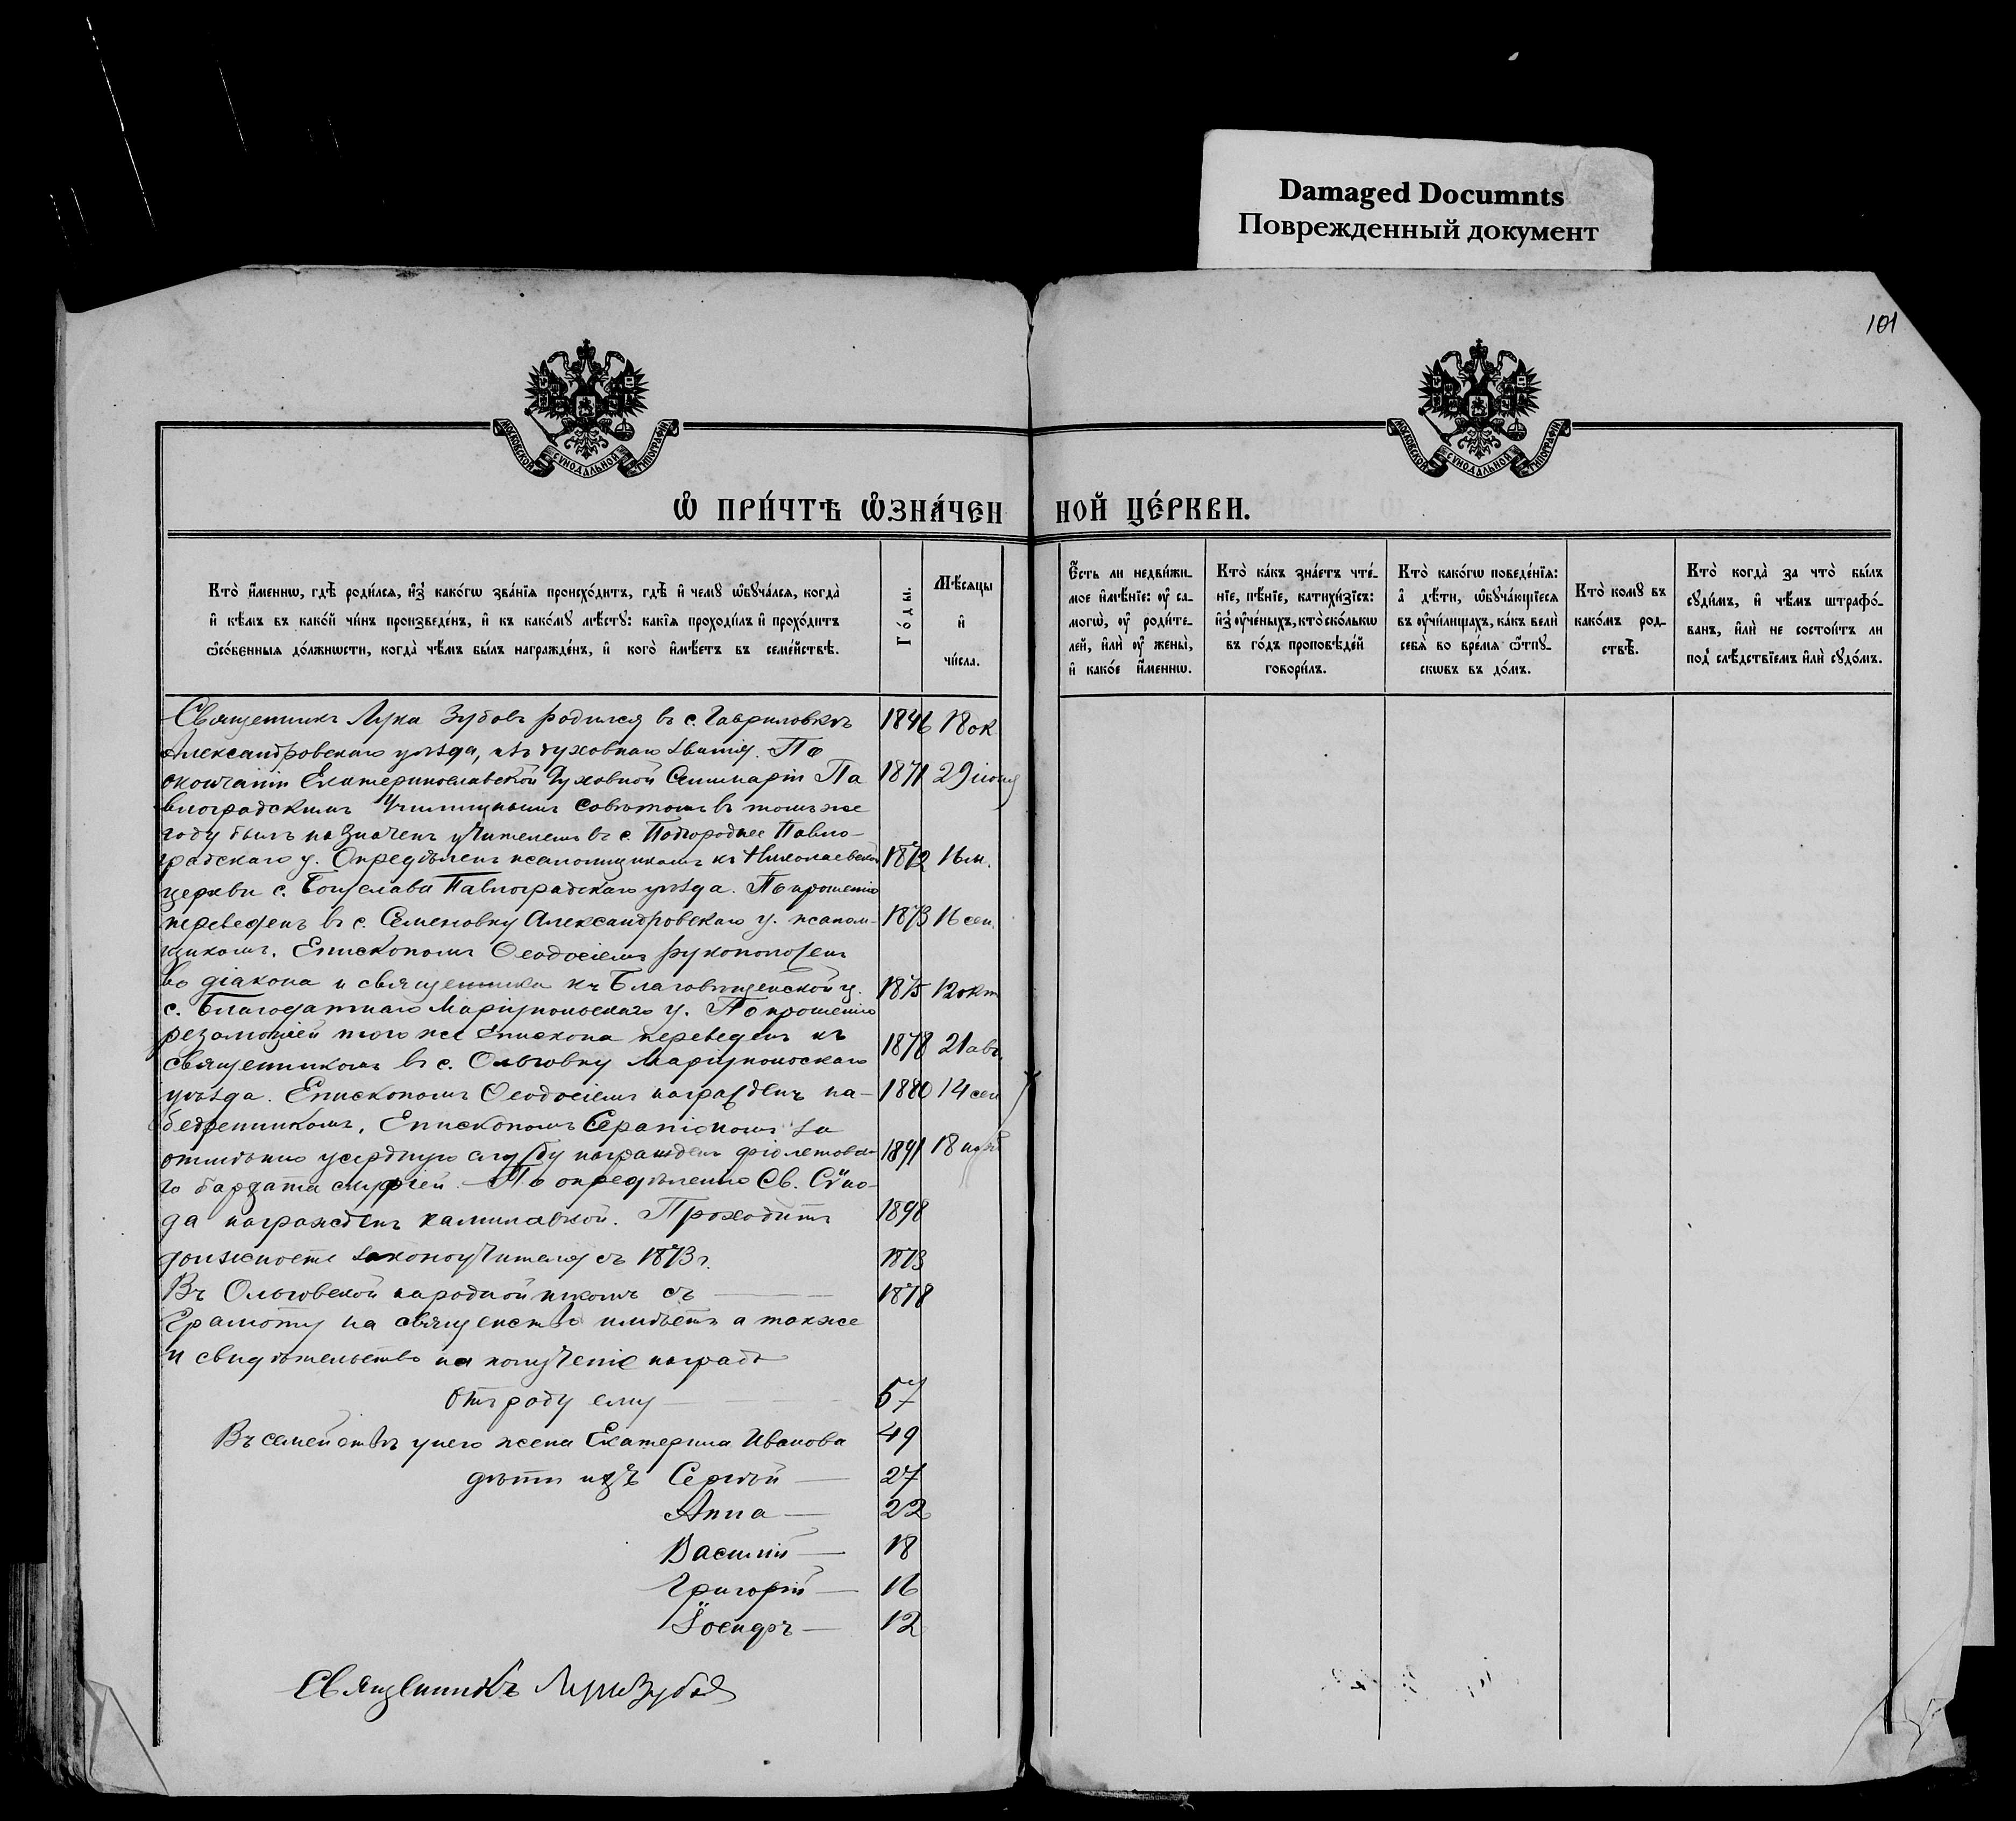 Damaged Documnts
Поврежденный документ
101
МОСКОВСКОЙ СУНОДАЛЬНОЙ ТИПОГРАФІИ
МОСКОВСКОЙ СУНОДАЛЬНОЙ ТИПОГРАФІИ
Ѽ ПРИ́ЧТѢ ѼЗНА́ЧЕННОЙ ЦЕ́РКВИ.
Кто̀ и҆́меннѡ, гдѣ̀ роди́лсѧ, и҆з̾ како́гѡ зва́нїѧ происхо́дитъ, гдѣ̀ и҆ чемꙋ̀ ѡ҆бꙋча́лсѧ, когда̀
и҆ кѣ́мъ въ како́й чи́нъ произведе́нъ, и҆ къ како́мꙋ мѣ́стꙋ: какі̑ѧ проходи́лъ и҆ прохо́дитъ
ѡ҆со́бенныѧ до́лжнѡсти, когда̀ чѣ́мъ бы́лъ награжде́нъ, и҆ кого̀ и҆мѣ́етъ въ семе́йствѣ.
Го́ды.
Мѣ́сѧцы
и҆
чи́сла.
Є҆́сть ли недви́жи-
мое и҆мѣ́нїе: ᲂу҆ са-
могѡ̀, ᲂу҆ роди́те-
лей, и҆лѝ ᲂу҆ жены̀,
и҆ како́е и҆́менно.
Кто̀ ка́къ зна́етъ чте́-
нїе, пѣ́нїе, катихи́зїсъ:
и҆з̾ ᲂу҆че́ныхъ, кто̀ ско́лькѡ
въ го́дъ проповѣ́дей
говори́лъ.
Кто̀ како́гѡ поведе́нїѧ:
а҆ дѣ́ти, ѡ҆бꙋча́ющїесѧ
въ ᲂу҆чи́лищахъ, ка́къ велѝ
себѧ̀ во вре́мѧ ѿпꙋ-
скѡвъ въ до́мъ.
Кто̀ комꙋ̀ въ
како́мъ род-
ствѣ̀.
Кто̀ когда̀ за что̀ бы́лъ
сꙋди́мъ, и҆ чѣ́мъ штрафо́-
ванъ, и҆лѝ не состои́тъ ли
под̾ слѣ́дствїемъ и҆лѝ сꙋдо́мъ.
Священникъ Лука Зубовъ родился въ с. Гавриловкѣ 1846 18 ок
Александровскаго уѣзда, изъ духовнаго званія. По
окончаніи Екатеринославской Духовной Семинаріи Па 1871 29 іюня
влоградскимъ Училищнымъ совѣтомъ въ томъ же
году былъ назначенъ учителемъ въ с. Подгороднее Павло-
градскаго у. Опредѣленъ псаломщикомъ къ Николаевской 1872 16 ...
церкви с. Богуслава Павлоградскаго уѣзда. По прошенію
переведенъ въ с. Семеновку Александровскаго у. псалом- 1873 16 сен.
щикомъ. Епископомъ Ѳеодосіемъ рукоположенъ
во діакона и священника къ Благовѣщенской ц. 1875 12 окт
с. Благодатнаго Маріупольскаго у. По прошенію
резолюціей того же епископа переведенъ къ
священникомъ въ с. Ольговку Маріупольскаго 1878 21 авг.
уѣзда. Епископомъ Ѳеодосіемъ награжденъ на- 1880 14 сен
бедренникомъ. Епископомъ Серапіономъ за
отлично усердную службу награжденъ фіолетова- 1891 18
го бархата скуфіей. По опредѣленію Св. Сѵно-
да награжденъ камилавкой. Проходитъ 1898
должность законоучителя съ 1873 г. 1873
Въ Ольговской народной школѣ съ — 1878
Грамоту на священство имѣетъ а также
и свидѣтельство на полученіе наградъ
Отъ роду ему — 57
Въ семействѣ у него жена Екатерина Иванова 49
дѣти ихъ Сергѣй — 27
Анна — 22
Василій — 18
Григорій — 16
Іосифъ — 12
Священникъ Лука Зубовъ